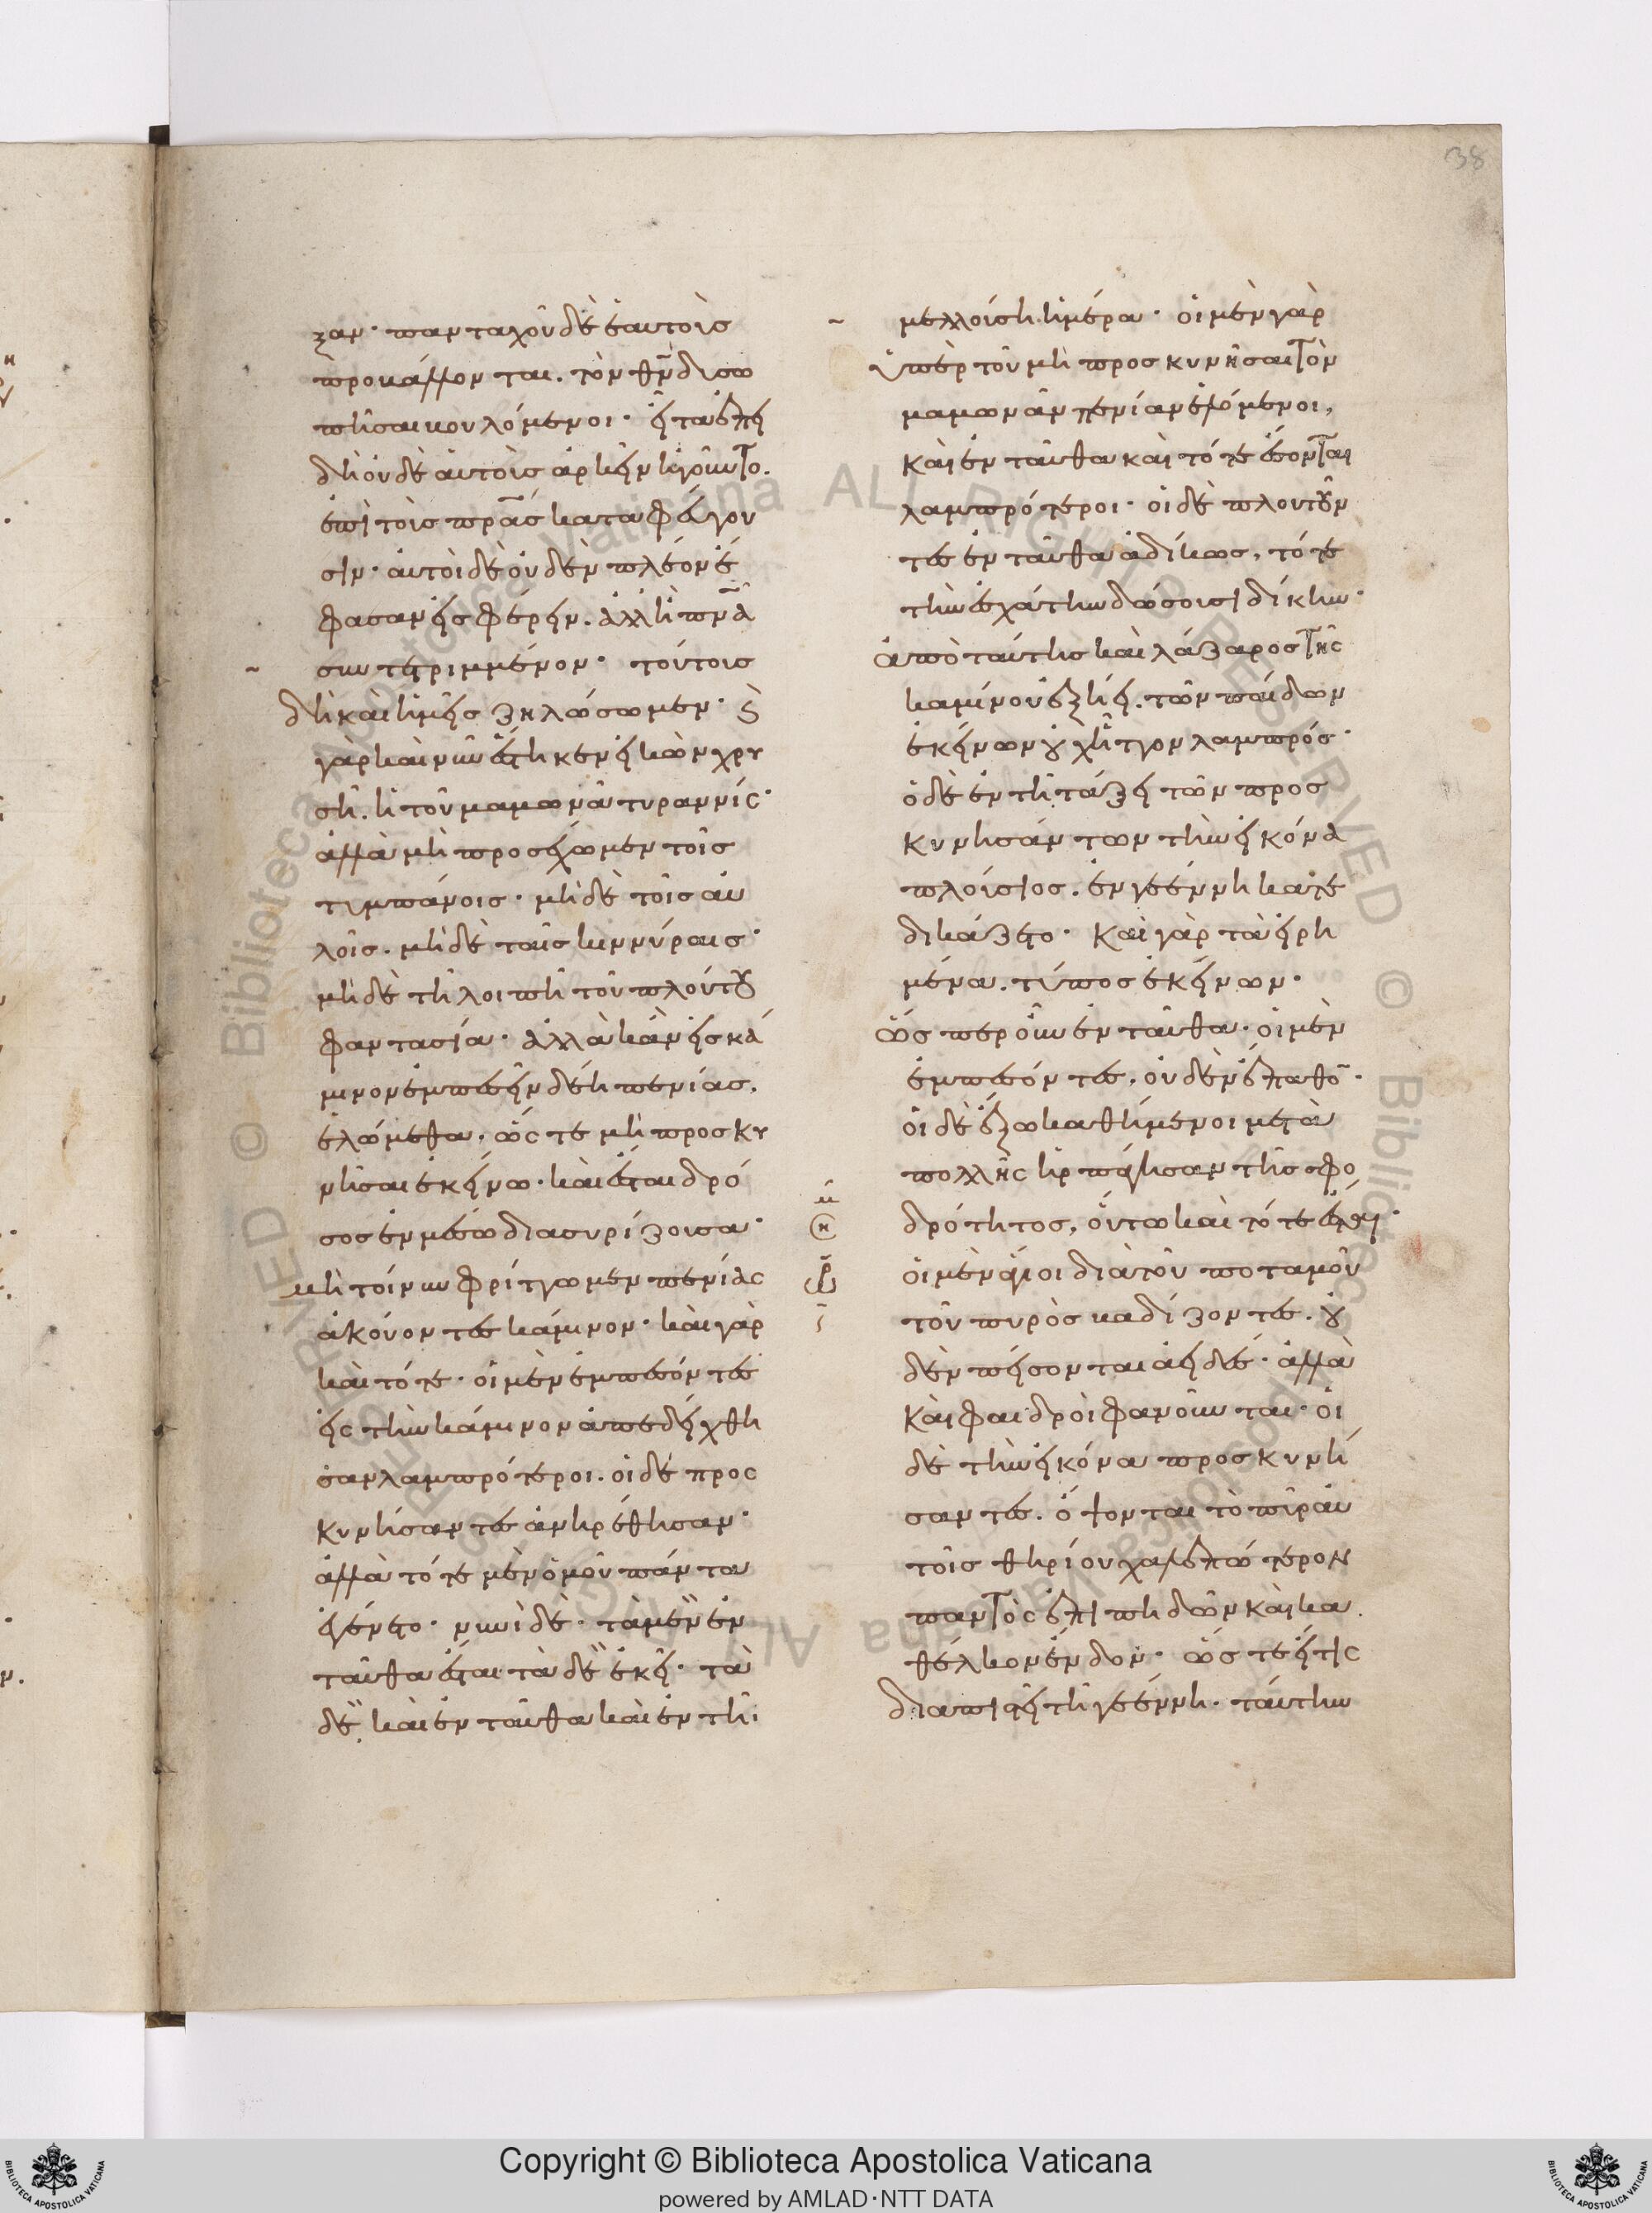 38
ξαν· πανταχοῦ δὲ ἑαυτοῖς
προυβάλλοντο. τὸν θν̄ δυσω
πῆσαι βουλόμενοι· ἐπειδὴ
δὲ οὐδὲ αὐτοῖς ἀρκεῖν ἡγοῦντο.
ἐπὶ τοὺς πρᾱς καταφεύγου
σιν· αὐτοὶ δὲ οὐδὲν πλέον ἔ
φασαν εἰσφέρειν. ἀλλ' ἢ πνᾱ
συντετριμμένον· τούτους
δὴ καὶ ἡμεῖς ζηλώσωμεν·
γὰρ καὶ νῦν ἕστηκεν εἰκὼν χρυ
σῆ. ἡ τοῦ μαμωνᾶ τυραννίς·
ἀλλὰ μὴ προσέχωμεν τοῖς
τυμπάνοις· μηδὲ τοῖς αὐ
λοῖς. μηδὲ ταῖς κιννύραις·
μηδὲ τῆ λοιπῆ τοῦ πλούτου
φαντασία· ἀλλὰ κἂν εἰς κά
μινον ἐμπεσεῖν δέη πενίας.
ἑλώμεθα. ὥστε μὴ προσκυ
νῆσαι ἐκείνω· καὶ ἔσται δρό
σος ἐν μέσω διασυρίζουσα·
μὴ τοίνυν φρίττωμεν πενίας
ἀκούοντες κάμινον· καὶ γὰρ
καὶ τότε· οἱ μὲν ἐμπεσόντες
εἰς τὴν κάμινον ἀπεδείχθη
σαν λαμπρότεροι. οἱ δὲ προς
κυνήσαντες ἀνηρέθησαν·
ἀλλὰ τότε μὲν ὁμοῦ πάντα
ἐγένετο· νυνὶ δὲ· τὰ μὲν ἐν
ταῦθα ἔσται τὰ δὲ ἐκεῖ· τὰ
δὲ καὶ ἐνταῦθα καὶ ἐν τῆ
μελλούση ἡμέρα· οἱ μὲν γὰρ
ὑπὲρ τοῦ μὴ προσκυνῆσαι τὸν
μαμωνᾶν πενίαν ἑλόμενοι,
καὶ ἐνταῦθα καὶ τότε ἔσονται
λαμπρότεροι· οἱ δὲ πλουτοῦν
τες ἐνταῦθα ἀδίκως, τότε
τὴν ἐσχάτην δώσουσι δίκην·
ἀπὸ ταύτης καὶ λάζαρος τῆς
καμίνου ἐξήει. τῶν παίδων
ἐκείνων οὐχ ἧττον λαμπρός·
ὁ δὲ ἐν τῆ τάξει τῶν προς
κυνησάντων τὴν εἰκόνα
πλούσιος. ἐν γεέννη κατε
δικάζετο· καὶ γὰρ τὰ εἰρη
μένα. τύπος ἐκείνων·
ὥσπερ οὖν ἐνταῦθα· οἱ μὲν
ἐμπεσόντες, οὐδὲν ἔπαθον·
οἱ δὲ ἔξω καθήμενοι μετὰ
πολλῆς ἡρπάγησαν τῆς σφο
δρότητος, οὕτω καὶ τότε ἔσται·
οἱ μὲν ἅγιοι διὰ τοῦ ποταμοῦ
τοῦ πυρὸς βαδίζοντες. οὐ
δὲν πείσονται ἀηδές· ἀλλὰ
καὶ φαιδροὶ φανοῦνται· οἱ
δὲ τὴν εἰκόνα προσκυνή
σαντες. ὄψονται τὸ πῦρ αὐ
τοῖς θηρίου χαλεπώτερον
παντὸς ἐπιπηδῶν καὶ κα
θέλκον ἔνδον· ὥστε εἴ τις
διαπιστεῖ τῆ γεέννη· ταύτην
Copyright © Biblioteca Apostolica Vaticana
powered by AMLAD·NTT DATA